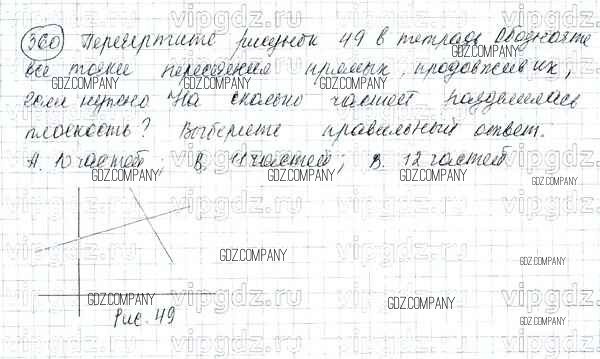 360 Перечертите рисунок 49 в тетрадь. Обозначьте
все точки пересечения прямых, продолжив их,
если нужно. На сколько частей разделилась
плоскость? Выберите правильный ответ.
А. 10 частей; Б. 11 частей; В. 12 частей
Рис. 49